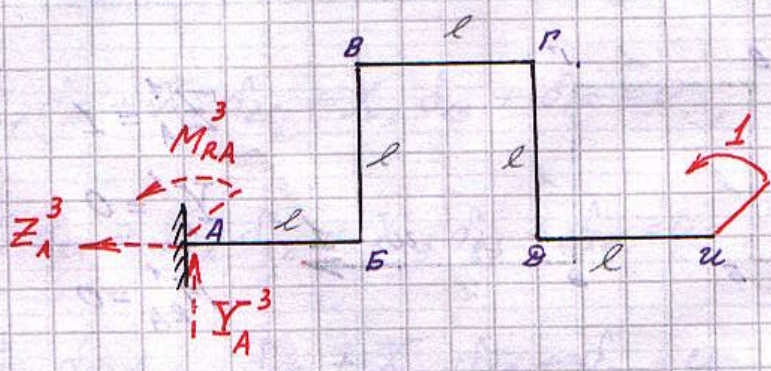 l
В Г
M_RA^3
l l 1
Z_A^3 А l Б Д l И
Y_A^3